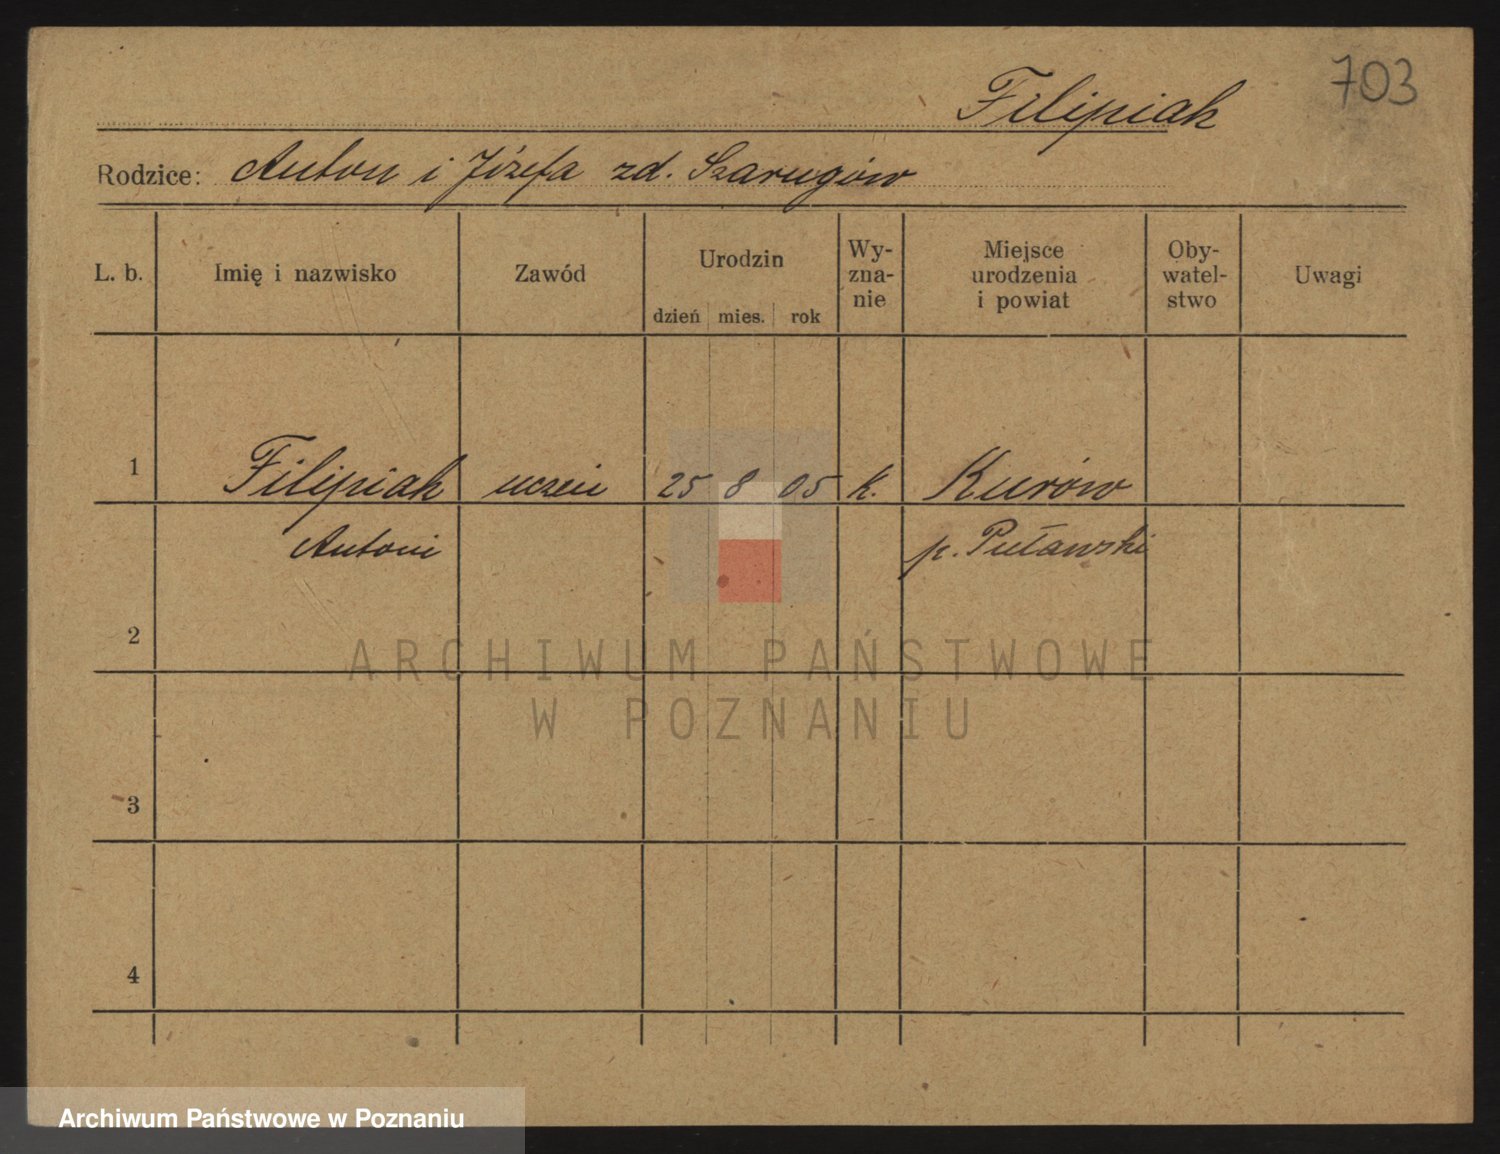 703
Filipiak
Rodzice: Anton i Józefa zd. Szarugów
L. b. Imię i nazwisko Zawód Urodzin Wy-zna-nie Miejsce urodzenia i powiat Oby-watel-stwo Uwagi
dzień mies. rok
1 Filipiak uczeń 25 8 05 k. Kurów
Antoni p. Puławski
2
3
4
ARCHIWUM PAŃSTWOWE
W POZNANIU
Archiwum Państwowe w Poznaniu